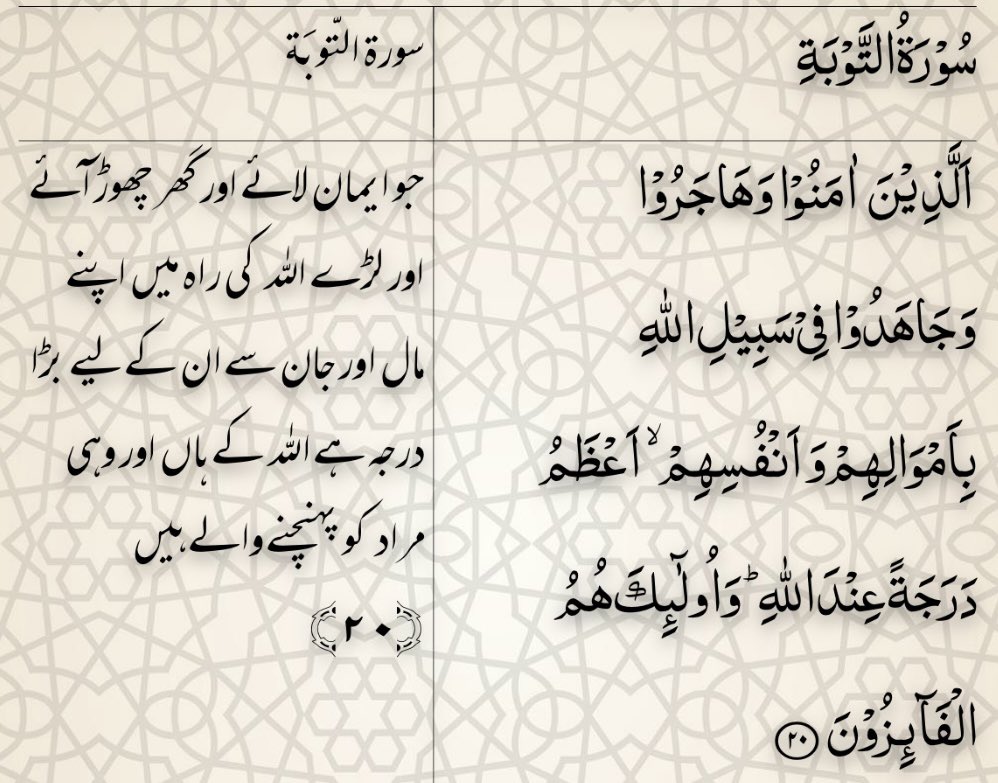 سُوْرَةُ التَّوْبَةِ
اَلَّذِيْنَ اٰمَنُوْا وَهَاجَرُوْا
وَجَاهَدُوْا فِيْ سَبِيْلِ اللّٰهِ
بِاَمْوَالِهِمْ وَاَنْفُسِهِمْ ۙ اَعْظَمُ
دَرَجَةً عِنْدَ اللّٰهِ ؕ وَاُولٰٓئِكَ هُمُ
الْفَآئِزُوْنَ ۝۲۰
سورة التّوبَة
جو ایمان لائے اور گھر چھوڑ آئے
اور لڑے اللہ کی راہ میں اپنے
مال اور جان سے ان کے لیے بڑا
درجہ ہے اللہ کے ہاں اور وہی
مراد کو پہنچنے والے ہیں
﴿۲۰﴾